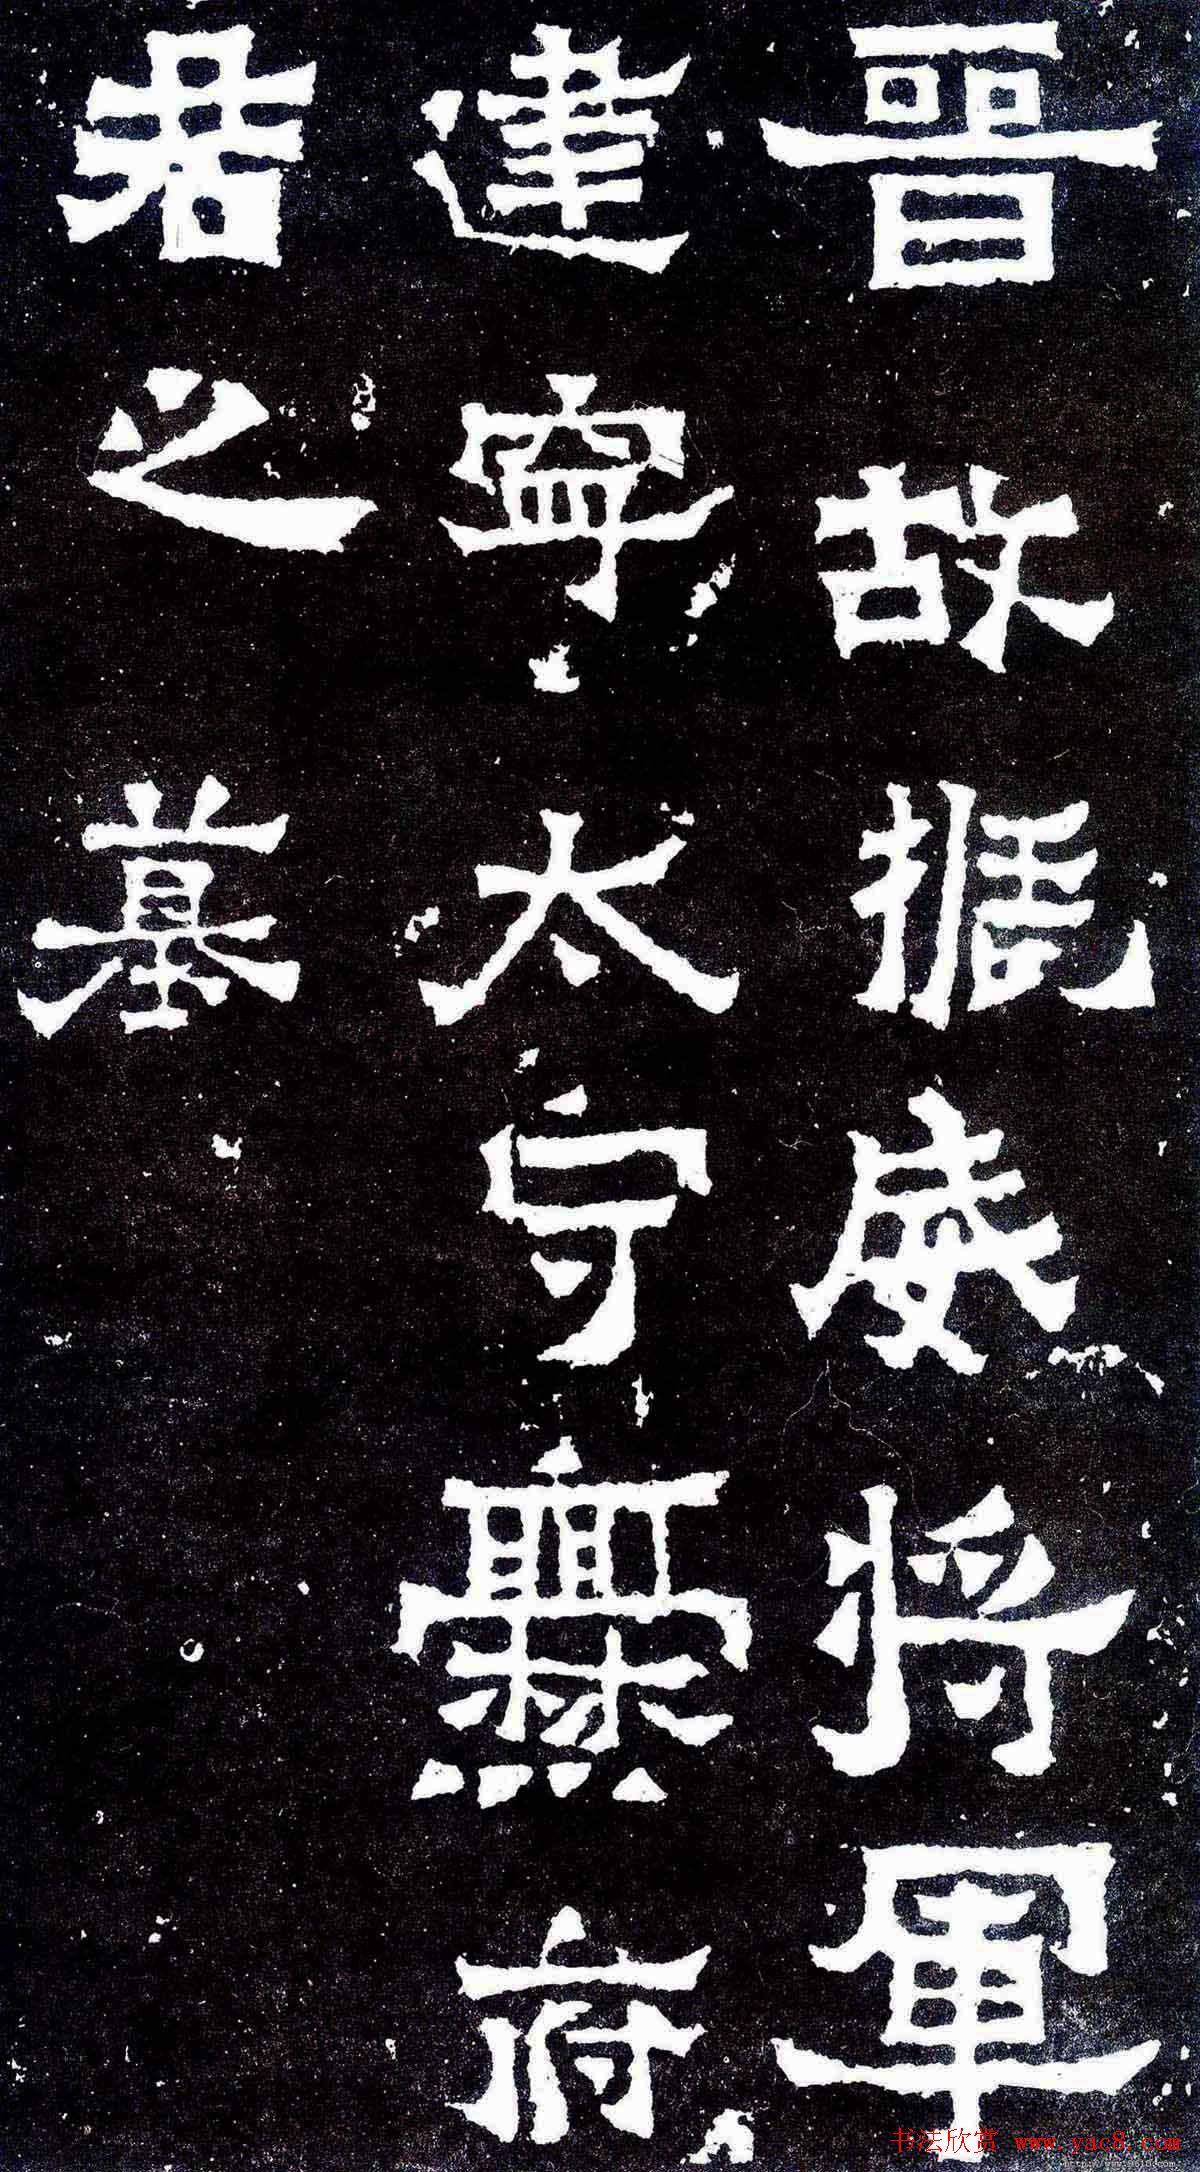 晉故振威將軍
建寧太守爨府
君之墓
书法欣赏 www.yac8.com